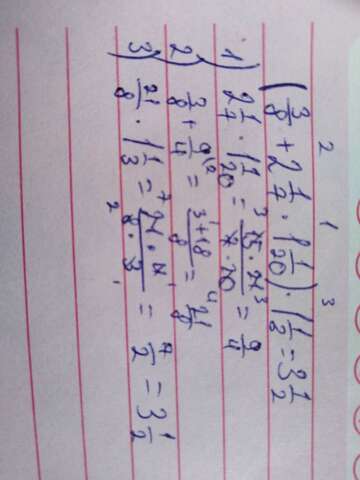 2 1 3
(3/8 + 2 1/7 · 1 1/20) · 1 1/3 = 3 1/2
1) 2 1/7 · 1 1/20 = 15 · 21/7 · 20 = 9/4
2) 3/8 + 9/4 = 3 + 18/8 = 21/8
3) 21/8 · 1 1/3 = 21 · 4/8 · 3 = 7/2 = 3 1/2